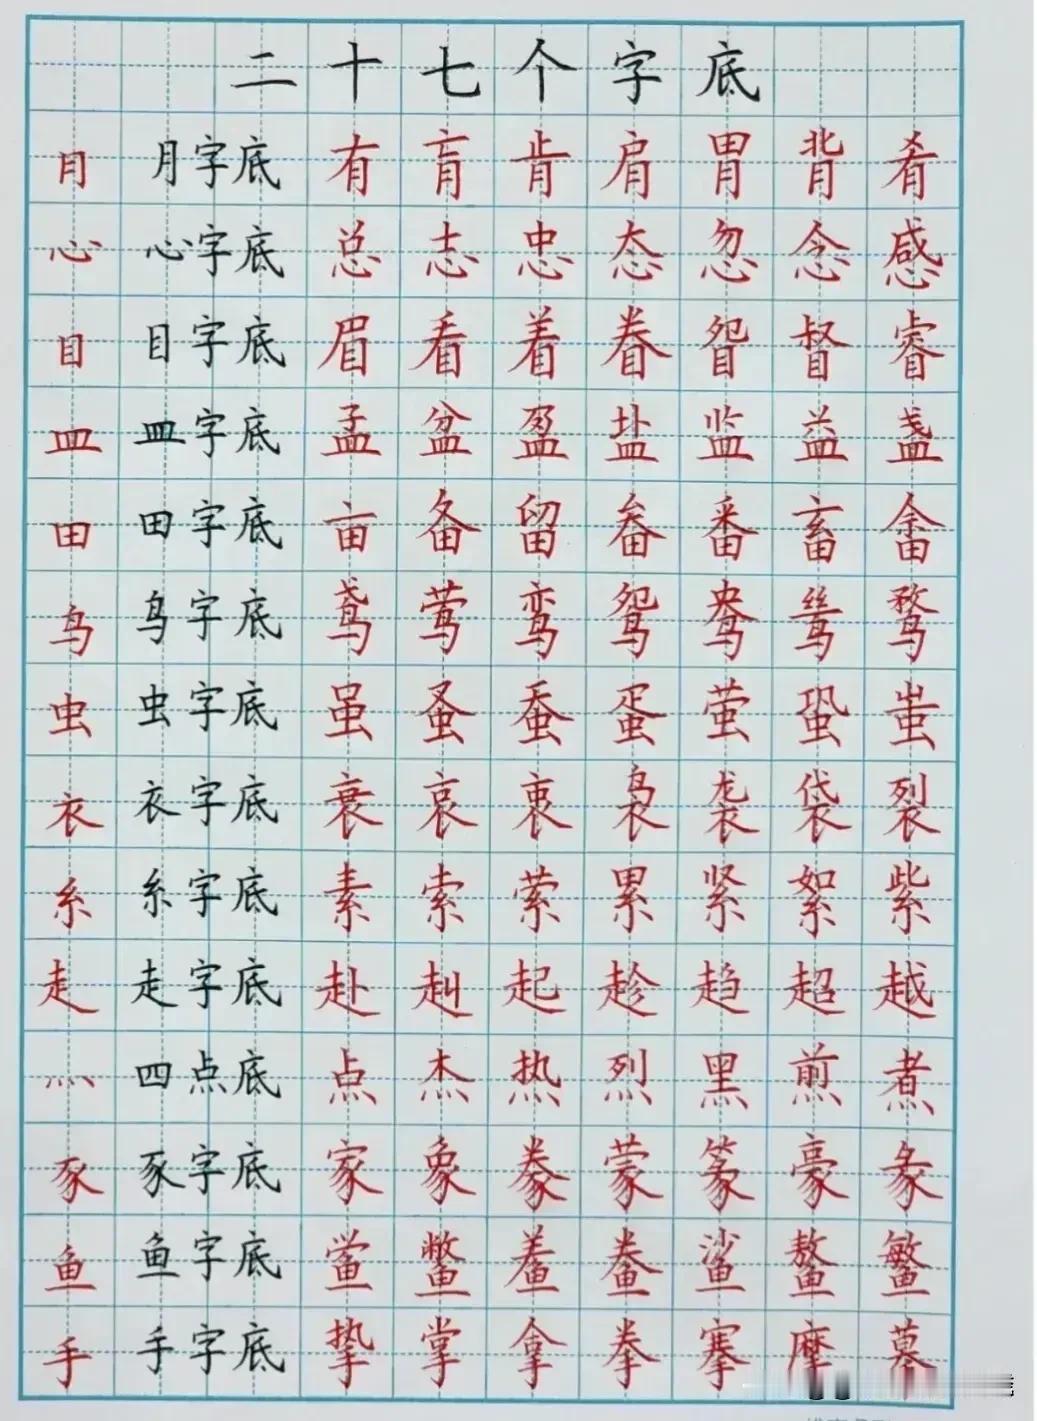 二十七个字底
月 月字底 有 肓 肯 肩 胃 背 肴
心 心字底 总 志 忠 态 忽 念 感
目 目字底 眉 看 着 眷 眢 督 睿
皿 皿字底 孟 盆 盈 盐 监 益 盏
田 田字底 亩 备 留 畚 番 畜 畲
鸟 鸟字底 鸢 莺 鸾 鸳 鸯 鸶 鹜
虫 虫字底 虽 蚤 蚕 蛋 萤 蛩 蚩
衣 衣字底 衰 哀 衷 袅 袭 袋 裂
糸 糸字底 素 索 萦 累 紧 絮 紫
走 走字底 赴 赳 起 趁 趋 超 越
灬 四点底 点 杰 热 烈 黑 煎 煮
豕 豕字底 家 象 豢 蒙 篆 豪 彖
鱼 鱼字底 鲎 鳖 鲝 鲞 鲨 鳌 鳘
手 手字底 挚 掌 拿 拳 搴 摩 摹